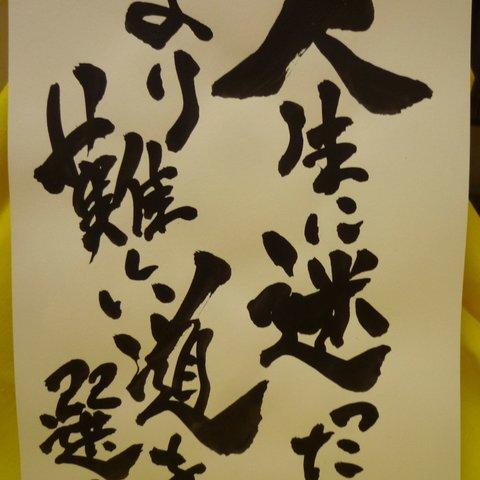 人生に迷った
より難しい道を
選